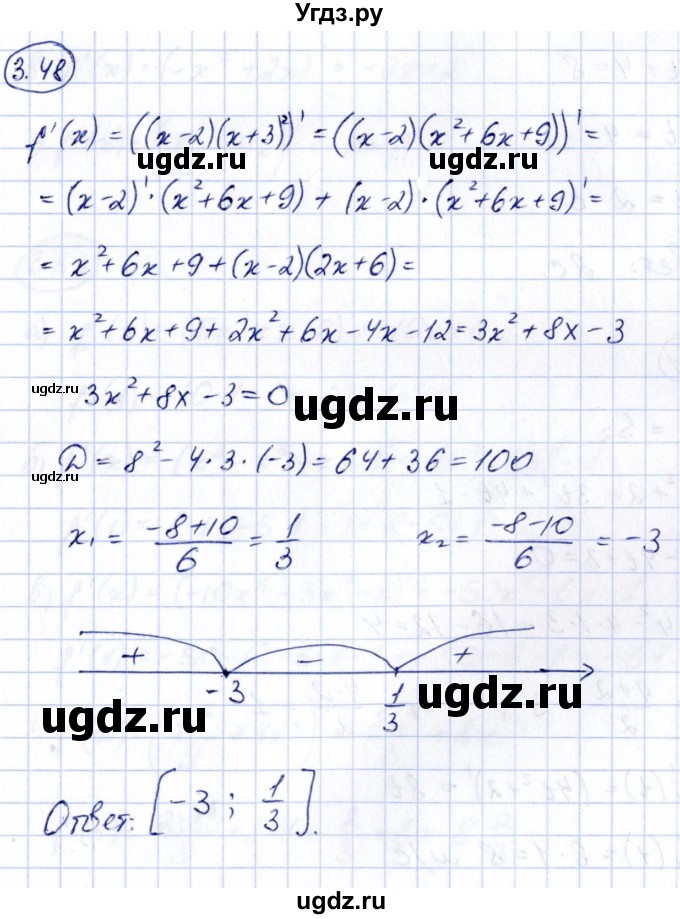 Угдз.ру
3.48
f'(x) = ((x-2)(x+3)²)' = ((x-2)(x²+6x+9))' =
ugdz.ru ugdz.ru
= (x-2)'·(x²+6x+9) + (x-2)·(x²+6x+9)' =
= x²+6x+9+(x-2)(2x+6) =
= x²+6x+9+2x²+6x-4x-12 = 3x²+8x-3
ugdz.ru 3x²+8x-3=0 ugdz.ru
ugdz.ru D = 8² - 4·3·(-3) = 64+36 = 100
x₁ = (-8+10)/6 = 1/3 x₂ = (-8-10)/6 = -3
+ - +
-3 1/3
ugdz.ru ugdz.ru
Ответ: [-3; 1/3].
ugdz.ru ugdz.ru